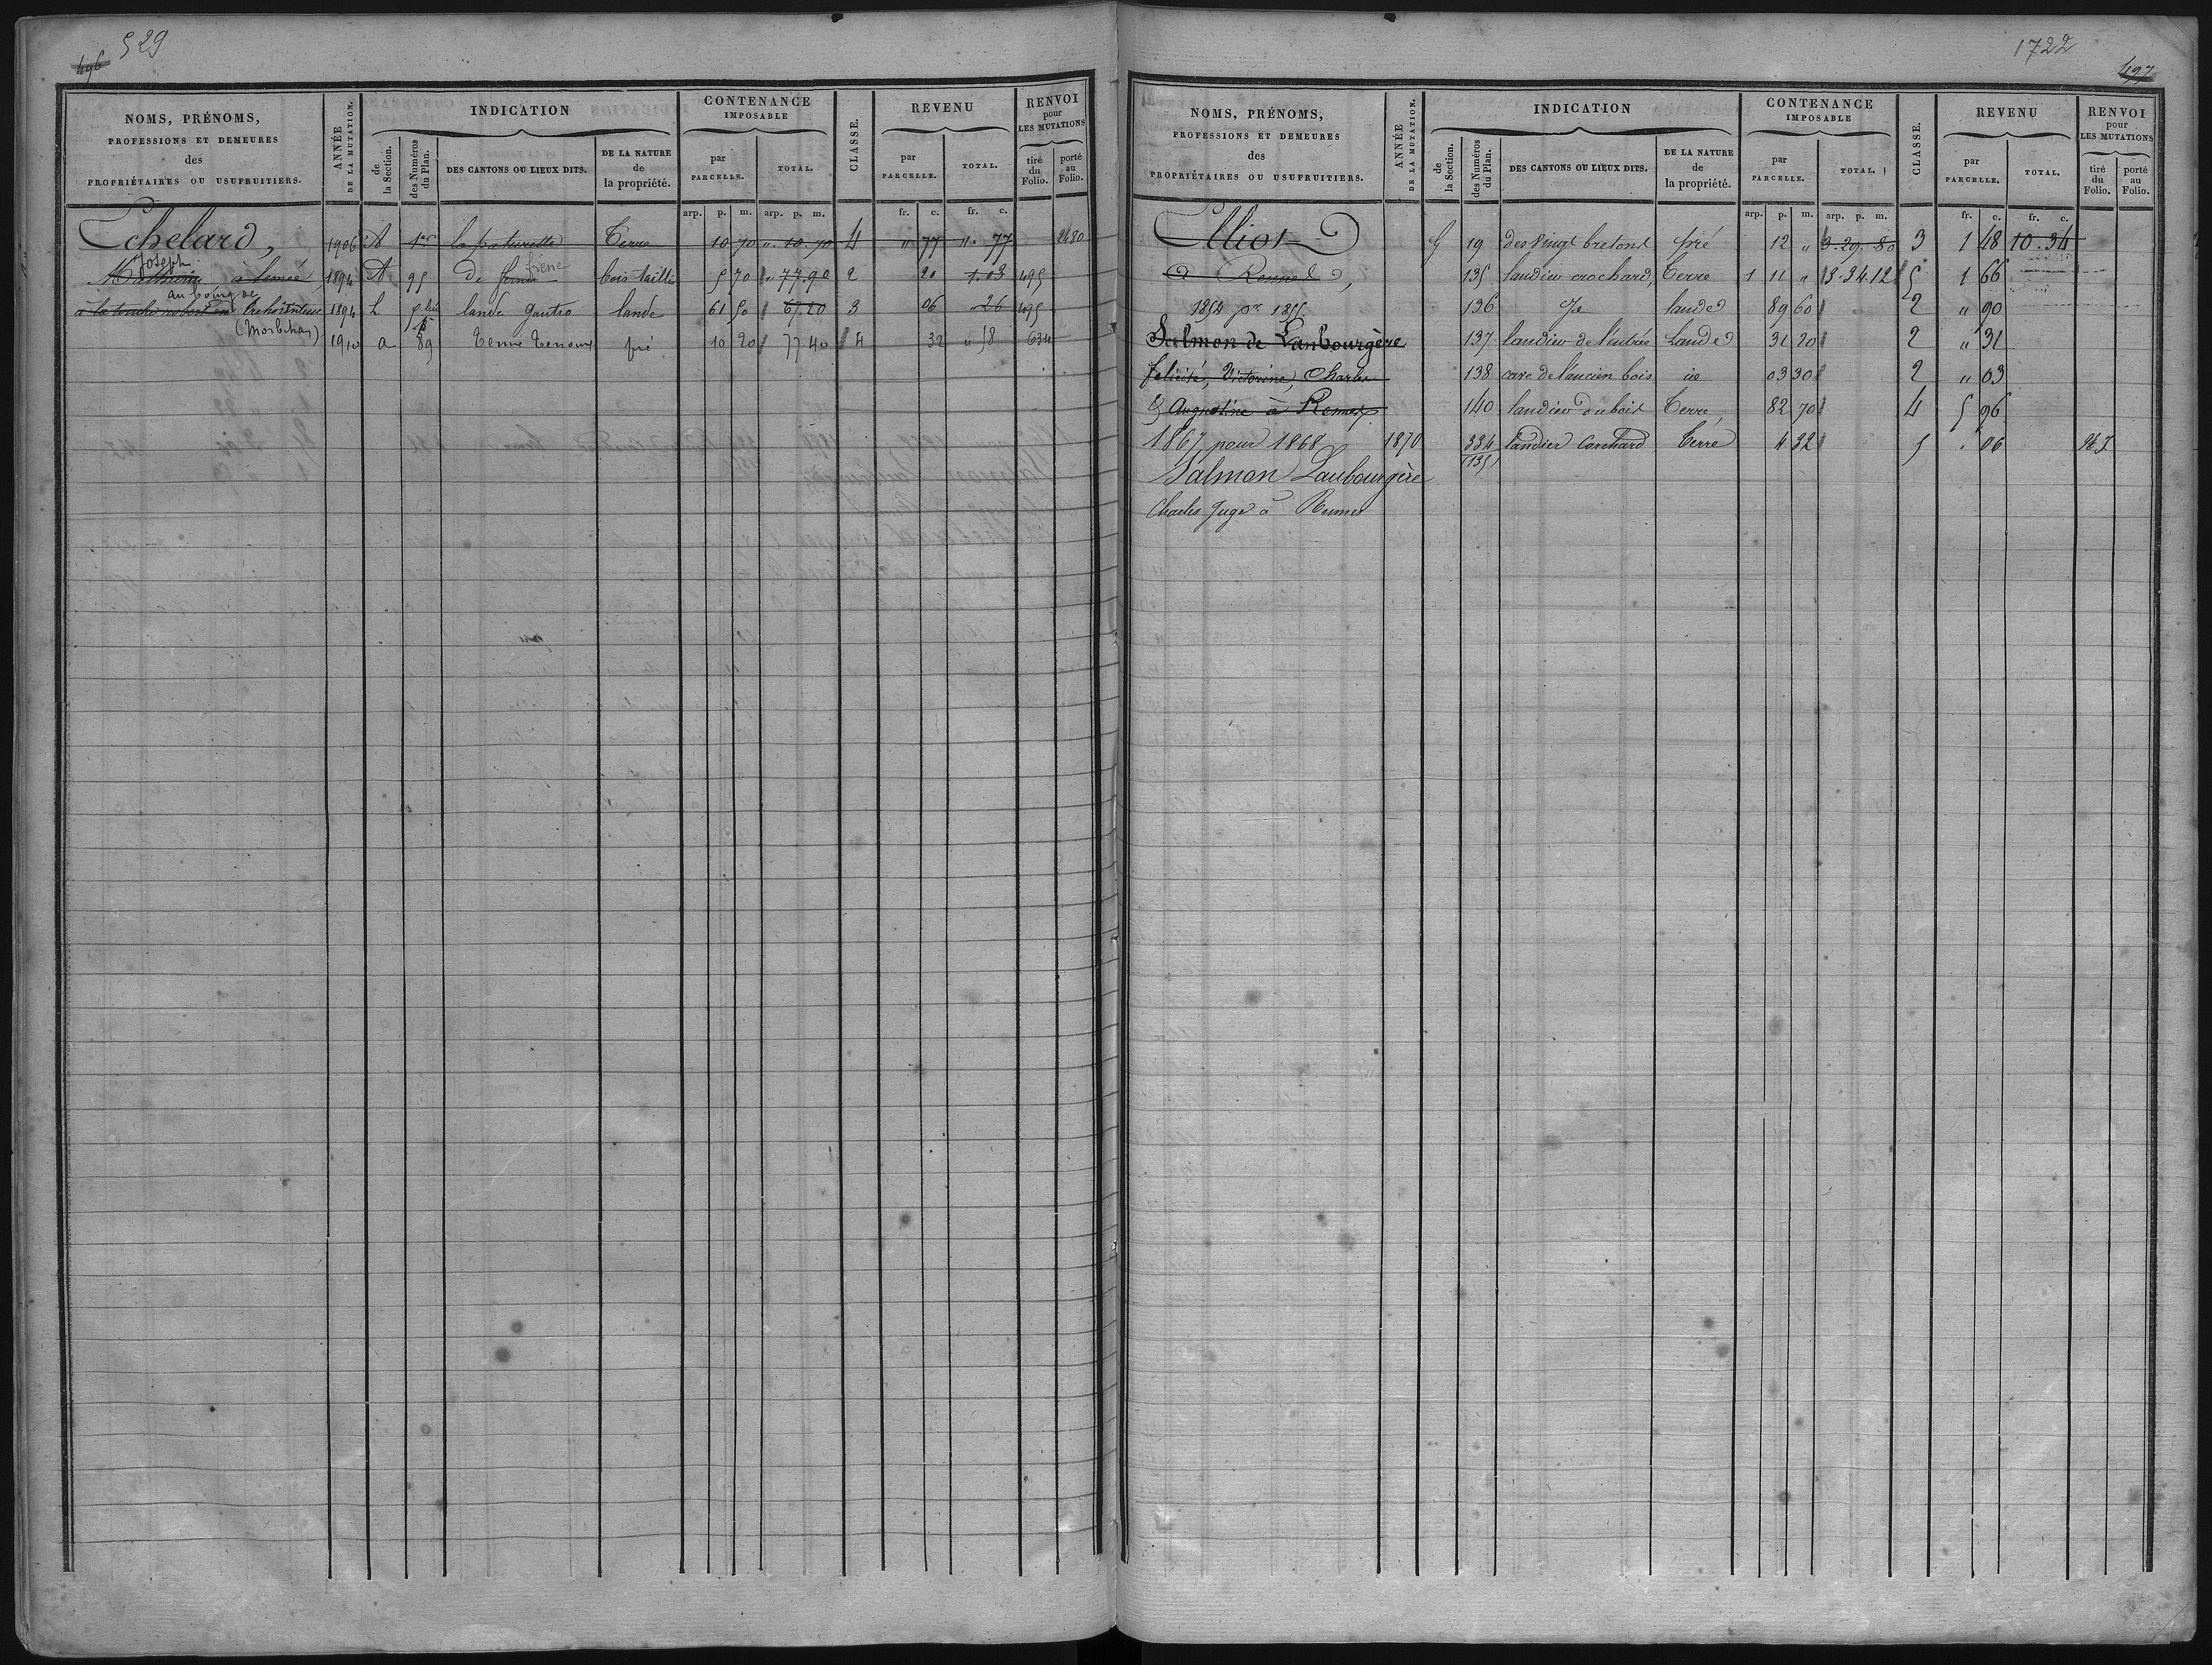 496 529
NOMS, PRÉNOMS,
PROFESSIONS ET DEMEURES
des
PROPRIÉTAIRES OU USUFRUITIERS.
ANNÉE
DE LA MUTATION.
INDICATION
de
la Section.
des Numéros
du Plan.
DES CANTONS OU LIEUX DITS.
DE LA NATURE
de
la propriété.
CONTENANCE
IMPOSABLE
par
PARCELLE.
TOTAL.
CLASSE.
REVENU
par
PARCELLE.
TOTAL.
RENVOI
pour
LES MUTATIONS
tiré
du
Folio.
porté
au
Folio.
arp. p. m. arp. p. m. fr. c. fr. c.
Echelard, 1906 A 1er la paturette Terre 10 70 " 10.70 4 " 77 ". 77 2480
Joseph
1894 A 95 De frêne bois taillis 5 70 " 77.90 2 20 1.03 495
au bourg de
à la touche robert en 1894 L lande Gautro lande 61 50 67.20 3 06 26 495
(Morbihan)
1910 a 89 pré 10 20 77.40 4 32 " 58 634
1722
497
NOMS, PRÉNOMS,
PROFESSIONS ET DEMEURES
des
PROPRIÉTAIRES OU USUFRUITIERS.
ANNÉE
DE LA MUTATION.
INDICATION
de
la Section.
des Numéros
du Plan.
DES CANTONS OU LIEUX DITS.
DE LA NATURE
de
la propriété.
CONTENANCE
IMPOSABLE
par
PARCELLE.
TOTAL.
CLASSE.
REVENU
par
PARCELLE.
TOTAL.
RENVOI
pour
LES MUTATIONS
tiré
du
Folio.
porté
au
Folio.
arp. p. m. arp. p. m. fr. c. fr. c.
Elliot G 19 des vingt bretons pré 12 " 3.29.80 3 1 48 10.34
à Rennes, 135 landier crochard, Terre 1 11 " 3.34.12 5 1 66
1854 pr 1855 136 lande 89 60 2 " 90
Salmon de Laubourgère 137 landier de l'entrée Lande 31 20 2 " 31
félicité, Victorine, Charles 138 cave de l'ancien bois 03 30 2 " 03
& Augustine à Rennes 140 landier du bois Terre 82 70 4 5 96
1867 pour 1868 1870 334 landier Terre 4 32 5 . 06
135
Salmon Laubourgère
Charles Juge à Rennes